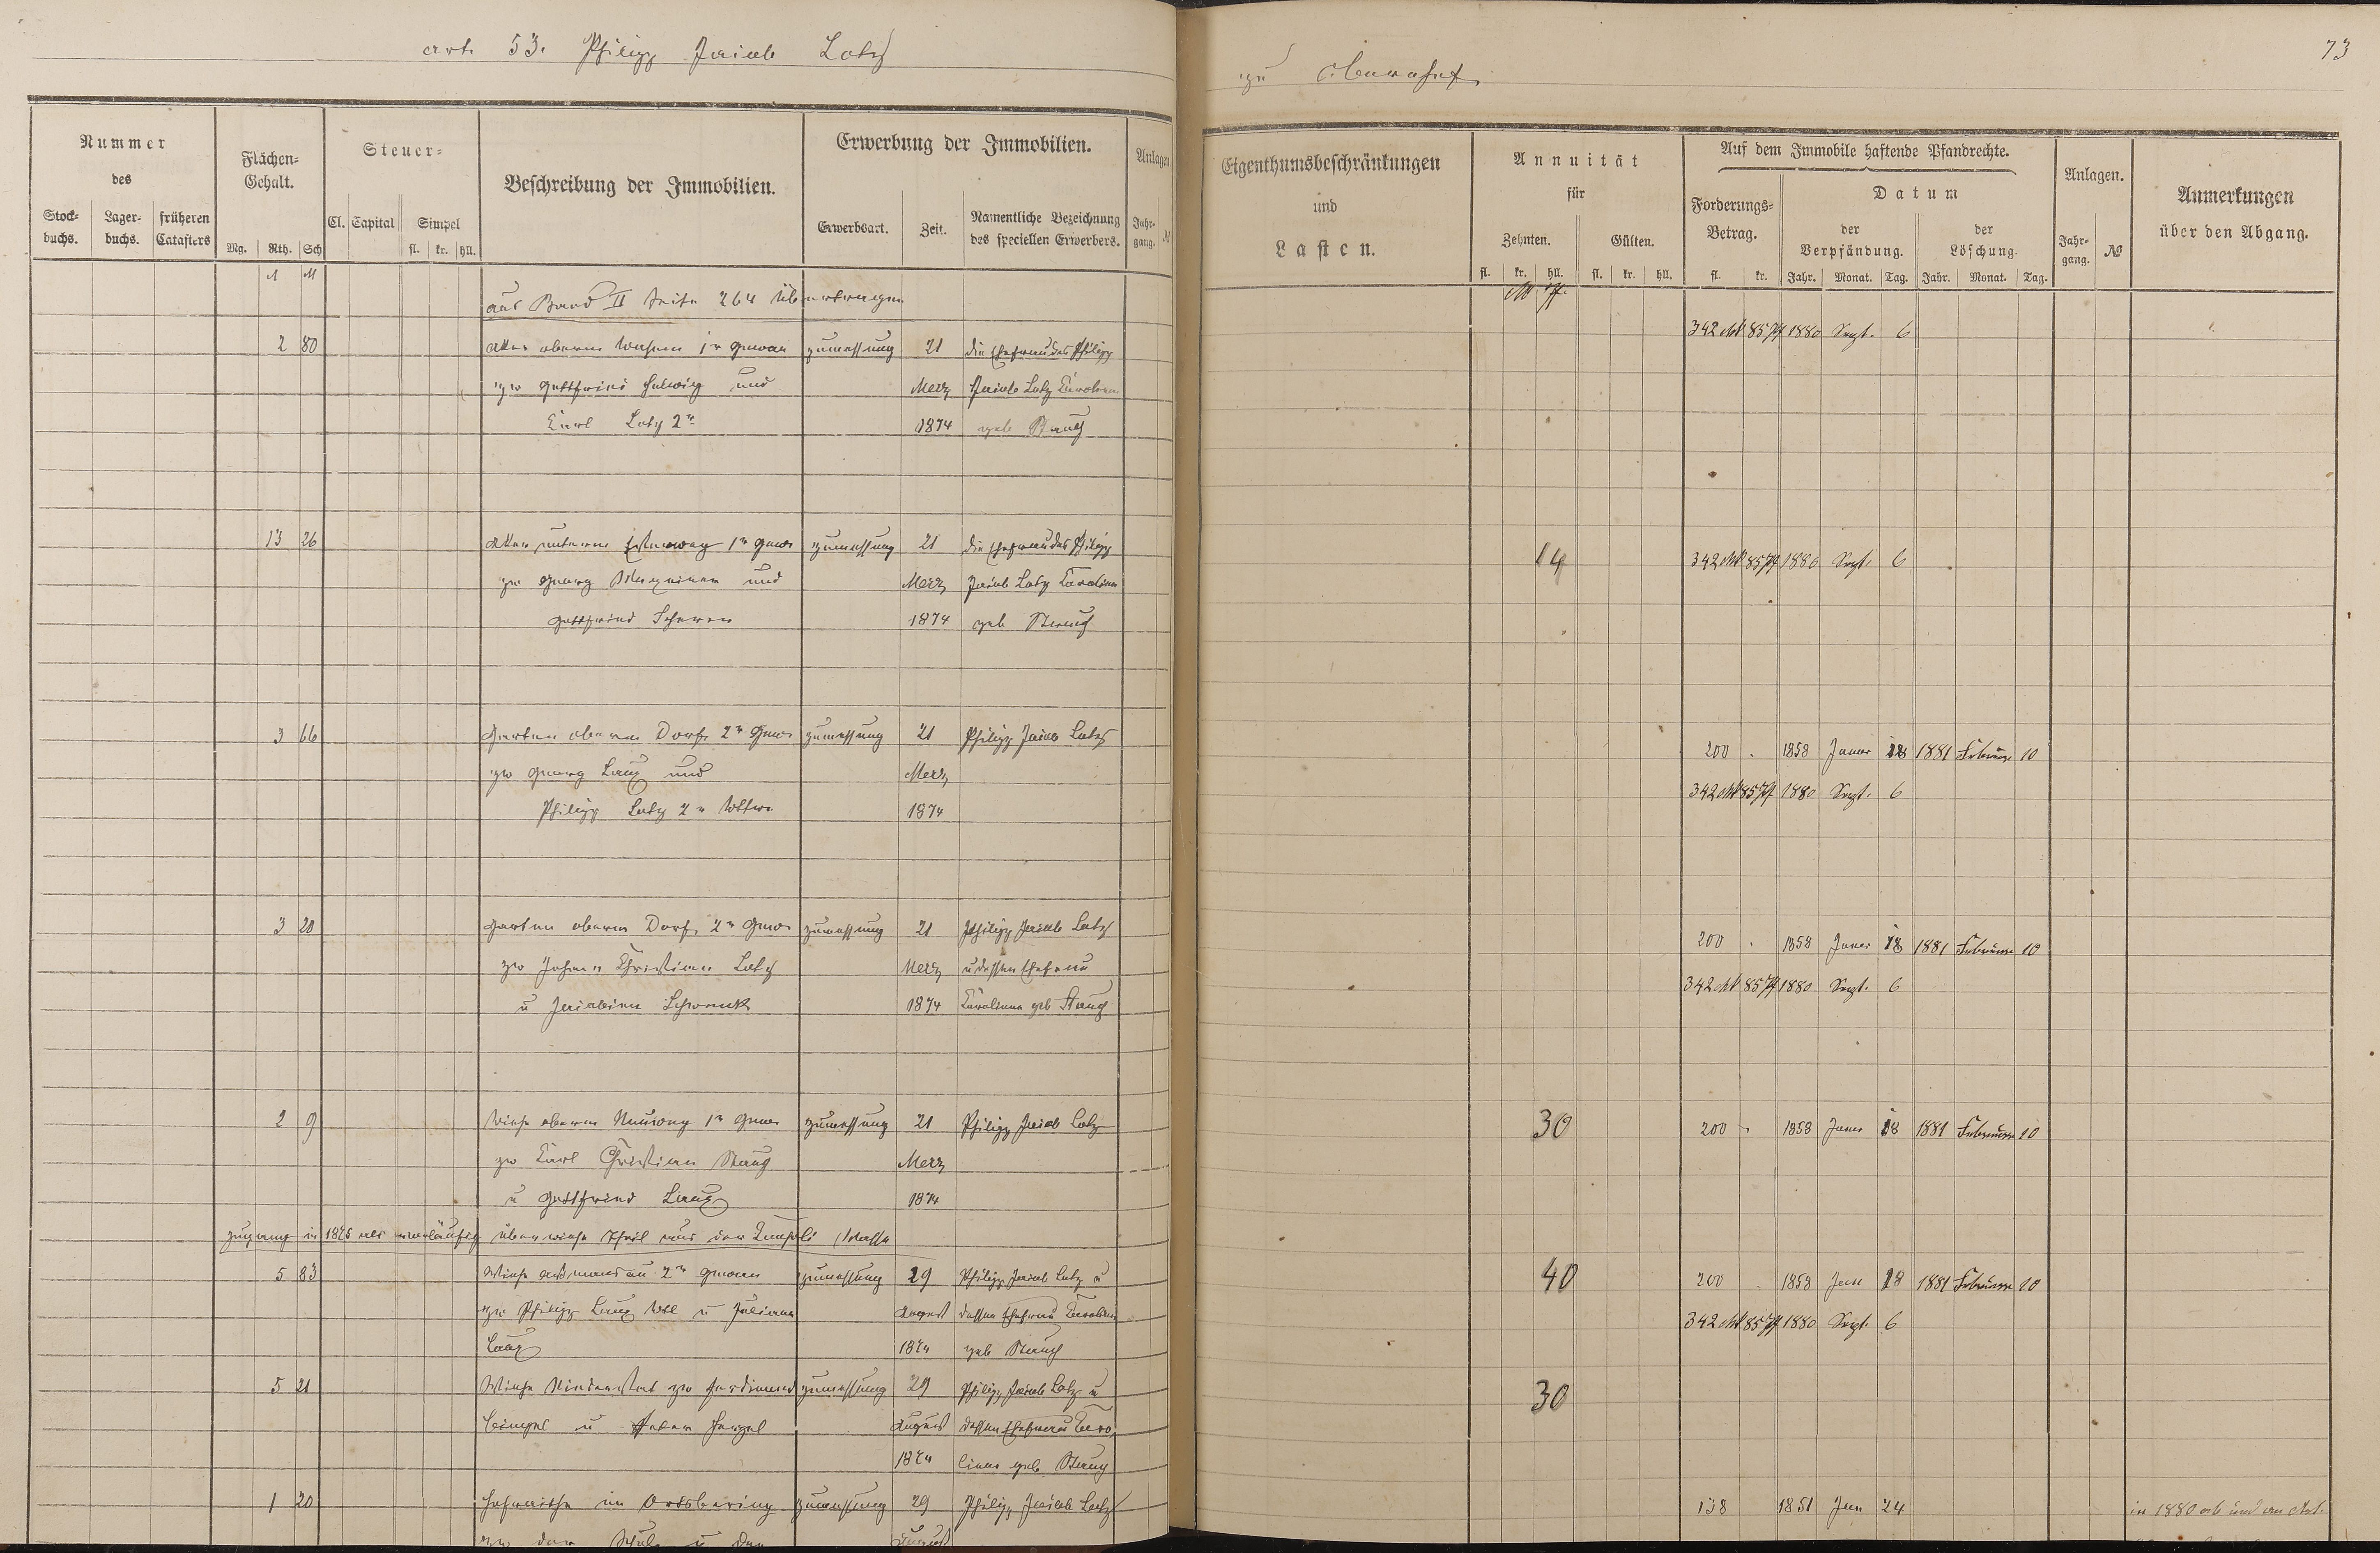 art. 53. Philipp Jacob Lotz
zu Obernhof
73
Nummer des
Stockbuchs. Lagerbuchs. früheren Catasters
Flächen-Gehalt.
Mg. Rth. Sch
Steuer-
Cl. Capital Simpel
fl. kr. hll.
Beschreibung der Immobilien.
Erwerbung der Immobilien.
Erwerbsart. Zeit. Namentliche Bezeichnung des speciellen Erwerbers.
Anlagen
Jahrgang. №
Eigenthumsbeschränkungen und Lasten.
Annuität für
Zehnten. Gülten.
fl. kr. hll. fl. kr. hll.
Auf dem Immobile haftende Pfandrechte.
Forderungs-Betrag.
fl. kr.
Datum
der Verpfändung. der Löschung.
Jahr. Monat. Tag. Jahr. Monat. Tag.
Anlagen.
Jahrgang. №
Anmerkungen über den Abgang.
aus Band II Seite 264 übertragen
2 80 Acker oberm 1r Gewan Zumessung 21 die Ehefrau des Philipp 342 Mk 85 Pf 1880 Sept. 6
zw Gottfried und Merz Jacob Lotz Carolina
Carl Lotz 2r 1874 geb Stauch
13 26 Acker unterm 1r Gew Zumessung 21 die Ehefrau des Philipp 14 342 Mk 85 Pf 1880 Sept. 6
zw Georg und Merz Jacob Lotz Carolina
Gottfried 1874 geb Stauch
3 66 Garten oberm Dorf 2r Gew Zumessung 21 Philipp Jacob Lotz 200 . 1858 Januar 18 1881 Februar 10
zw Georg Laux und Merz 342 Mk 85 Pf 1880 Sept. 6
Philipp Lotz 2r Wittwe 1874
3 20 Garten oberm Dorf 2r Gew Zumessung 21 Philipp Jacob Lotz 200 . 1858 Januar 18 1881 Februar 10
zw Johann Christian Lotz Merz u dessen Ehefrau 342 Mk 85 Pf 1880 Sept. 6
u Jacobina Schwenk 1874 Carolina geb Stauch
2 9 Wiese oberm 1r Gew Zumessung 21 Philipp Jacob Lotz 30 200 1858 Januar 18 1881 Februar 10
zw Carl Christian Stauch Merz
u Gottfried Laux 1874
Zugang in als vorläufig Theil aus der Masse
5 83 Wiese 2r Gewan Zumessung 29 Philipp Jacob Lotz u 40 200 . 1858 Jan 18 1881 Februar 10
zw Philipp Laux u Juliana August dessen Ehefrau Carolina 342 Mk 85 Pf 1880 Sept. 6
Laux 1874 geb Stauch
5 21 Wiese zw Ferdinand Zumessung 29 Philipp Jacob Lotz u 30
u August dessen Ehefrau Caro
1874 lina geb Stauch
1 20 Hofraithe im Ortsbering Zumessung 29 Philipp Jacob Lotz 138 1851 Jan 24 in 1880 ab und an Art.
zw der Schule u der August